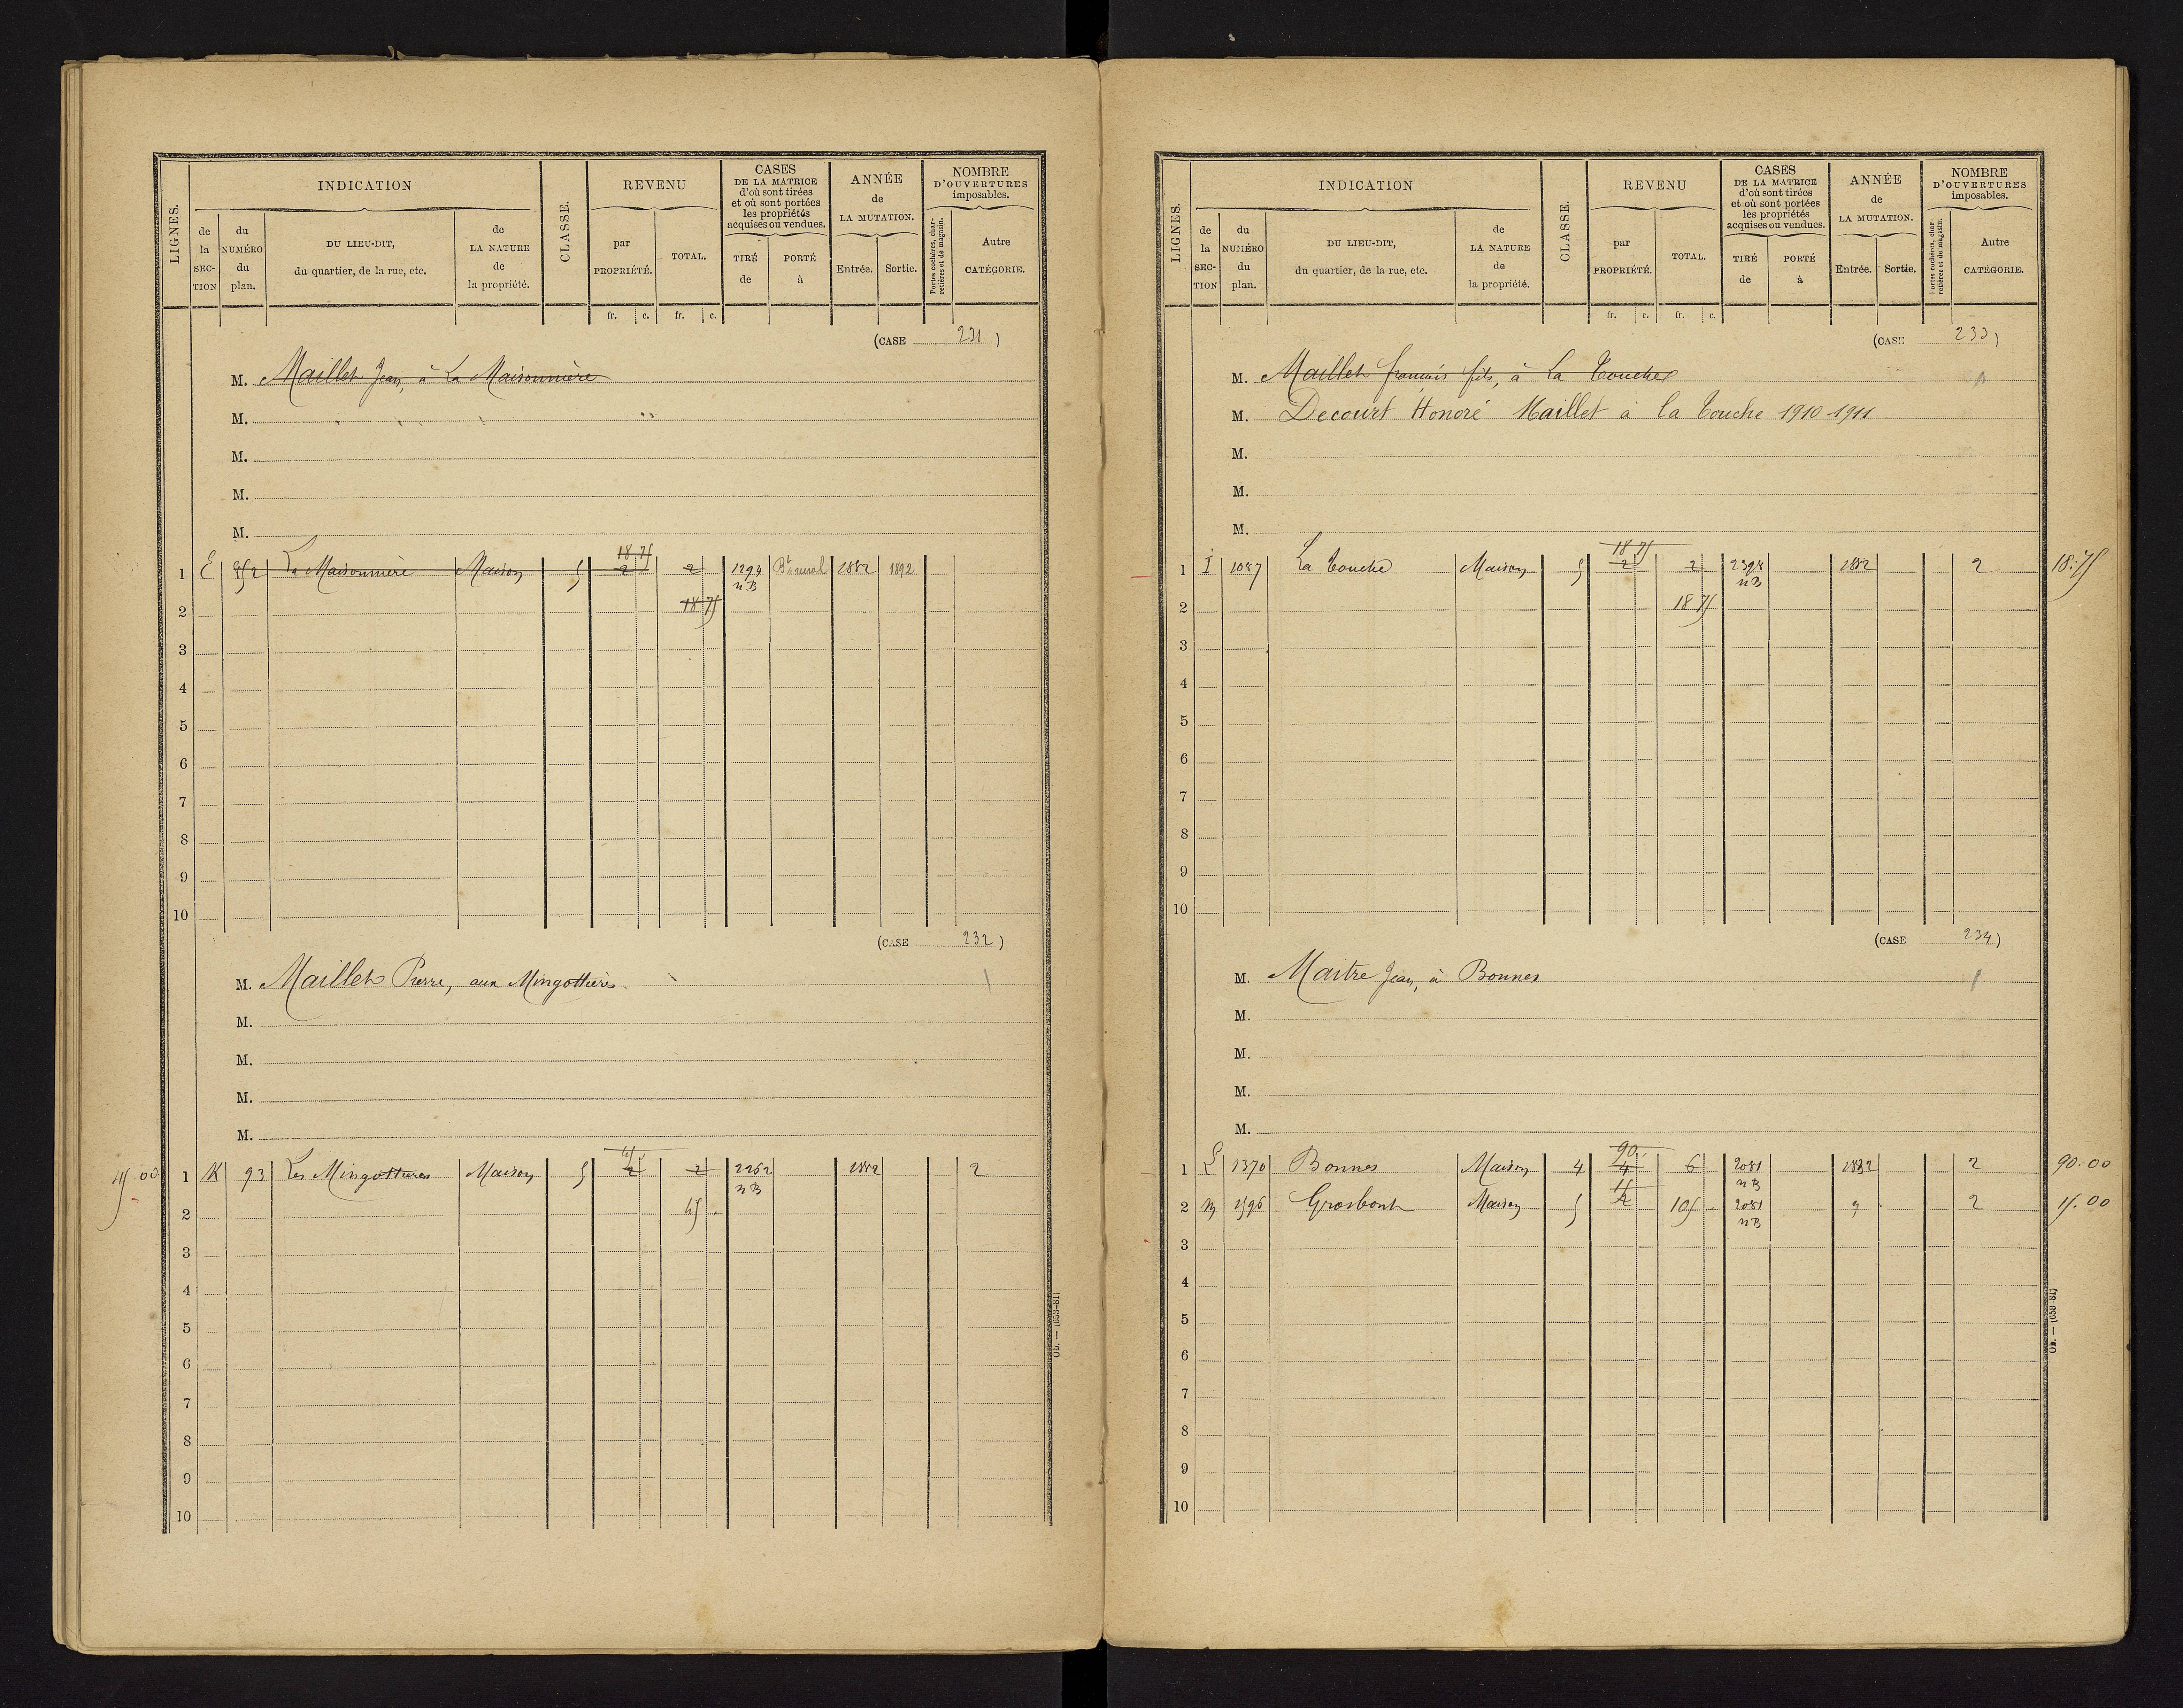 LIGNES.
INDICATION
de la SECTION
du NUMÉRO du plan.
DU LIEU-DIT, du quartier, de la rue, etc.
de LA NATURE de la propriété.
CLASSE.
REVENU
par PROPRIÉTÉ.
TOTAL.
CASES DE LA MATRICE d'où sont tirées et où sont portées les propriétés acquises ou vendues.
TIRÉ de
PORTÉ à
ANNÉE de LA MUTATION.
Entrée.
Sortie.
NOMBRE D'OUVERTURES imposables.
Portes cochères, charretières et de magasin.
Autre CATÉGORIE.
fr. c. fr. c.
(CASE 231)
M. Maillet Jean, à La Maisonnière
M.
M.
M.
M.
18 75
1 E 952 La Maisonnière Maison 5 2 2 1294 Bt rural 1882 1892
nB
2 18 75
3
4
5
6
7
8
9
10
(CASE 232)
M. Maillet Pierre, aux Mingottières 1
M.
M.
M.
M.
45
45.00 1 K 93 Les Mingottières Maison 5 2 2 2262 1882 2
nB
2 45
3
4
5
6
7
8
9
10
Ob. — (659-81)
LIGNES.
INDICATION
de la SECTION
du NUMÉRO du plan.
DU LIEU-DIT, du quartier, de la rue, etc.
de LA NATURE de la propriété.
CLASSE.
REVENU
par PROPRIÉTÉ.
TOTAL.
CASES DE LA MATRICE d'où sont tirées et où sont portées les propriétés acquises ou vendues.
TIRÉ de
PORTÉ à
ANNÉE de LA MUTATION.
Entrée.
Sortie.
NOMBRE D'OUVERTURES imposables.
Portes cochères, charretières et de magasin.
Autre CATÉGORIE.
fr. c. fr. c.
(CASE 233)
M. Maillet françois fils, à La Touche
M. Decourt Honoré Maillet à la Touche 1910-1911
M.
M.
M.
18 75
1 I 1087 La Touche Maison 5 2 2 2398 1882 2 18.75
nB
2 18 75
3
4
5
6
7
8
9
10
(CASE 234)
M. Maitre Jean, à Bonnes 1
M.
M.
M.
M.
90.
1 L 1370 Bonnes Maison 4 4 6 2081 1882 2 90.00
15 nB
2 M 1596 Grosbout Maison 5 2 105 2081 " 2 15.00
nB
3
4
5
6
7
8
9
10
Ob. — (659-81)